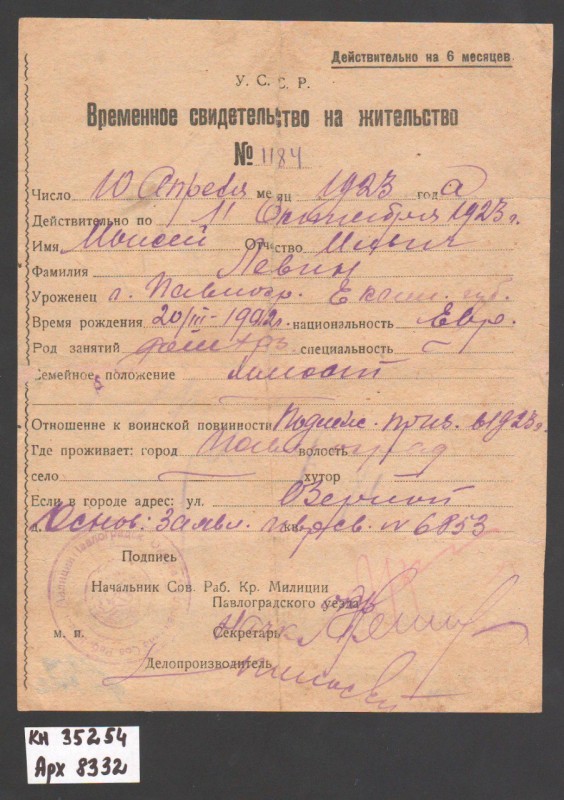 Действительно на 6 месяцев
У. С. С. Р.
Временное свидетельство на жительство
№ 1184
Число 10 Апреля месяц 1923 года
Действительно по 11 Сентября 1923 г.
Имя Моисей Отчество
Фамилия Левин
Уроженец г. Павлогр. Екат. губ.
Время рождения 20/III-1902 г. национальность Евр.
Род занятий специальность —
Семейное положение холост
Отношение к воинской повинности Подлеж. приз. в 1923 г.
Где проживает: город Павлоград волость
село — хутор
Если в городе адрес: ул. Озерной
Основ: Заявл. св. № 6853
Подпись
Начальник Сов. Раб. Кр. Милиции
Павлоградского уезда
м. п. Секретарь
Делопроизводитель
КП 35254
Арх 8332